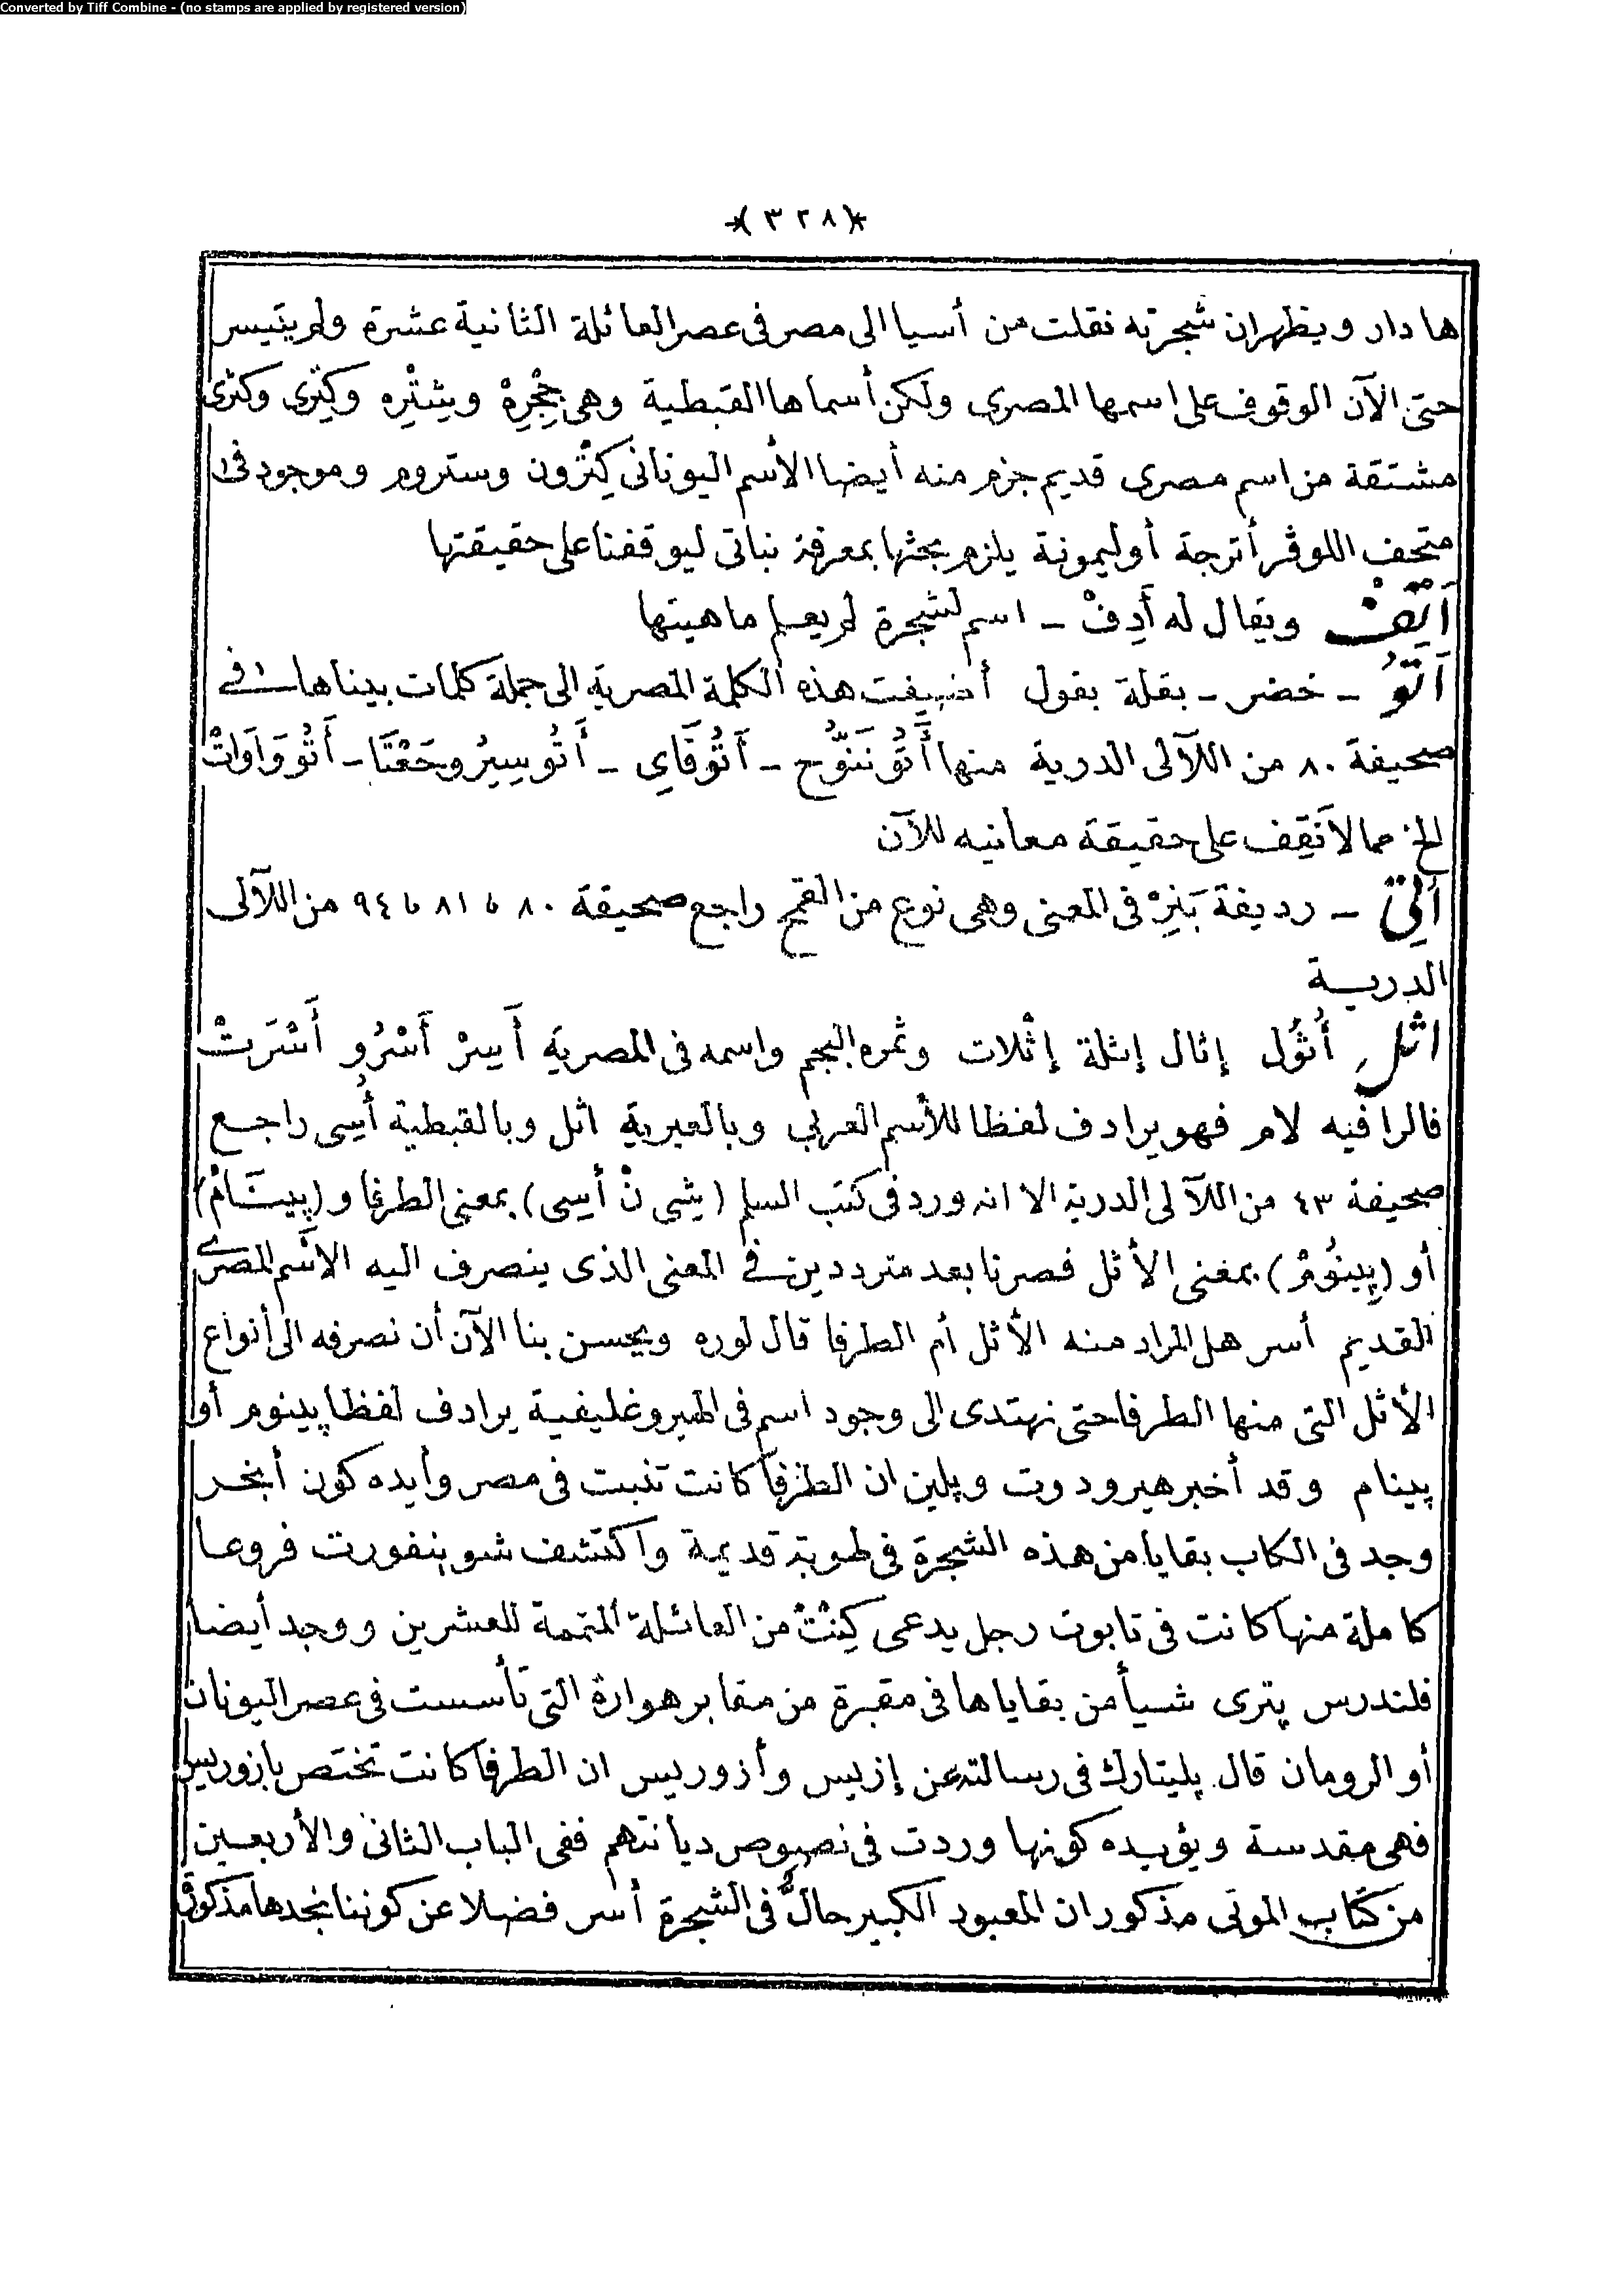 Converted by Tiff Combine - (no stamps are applied by registered version)
*(٣٢٨)*
ها دار ويظهران شجرته نقلت من أسيا الى مصر فى عصر العائلة الثانية عشرة ولم يتيسر
حتى الآن الوقوف على اسمها المصرى ولكن أسماها القبطية وهى جِجْرِهْ ويِثْرِه وكِتْرى وكثرى
مشتقة من اسم مصرى قديم جزم منه أيضا الأسم اليونانى كِثْرون وستروم وموجود فى
متحف اللوڤر أترجة أوليمونة يلزم بحثها بمعرفة نباتى ليوقفنا على حقيقتها
ويقال له أَدِفْ – اسم لشجرة لم يعلم ماهيتها
أَتُو – خضر – بقلة بقول أضيفت هذه الكلمة المصرية الى جملة كلمات بيناها فى
صحيفة ٨٠ من اللآلى الدرية منها أَتُو نَنَوُّح – أَتُوقَاىِ – أَتُوسِيرُ وحَعْتَا – أَتُو وَاوَاتْ
الخ مما لا نَقِف على حقيقة معانيه للآن
أَتِى – رديفة بَنِرْه فى المعنى وهى نوع من القمح راجع صحيفة ٨٠ ، ٨١ ، ٩٤ من اللآلى
الدرية
اثل أُثُول إثال إثلة إثْلات وثمره البجم واسمه فى المصرية أَسِرْ أَسْرُو أَسْرَتْ
فالرا فيه لام فهو يرادف لفظا للأسم العربى وبالعبرية اثل وبالقبطية أُسِى راجع
صحيفة ٤٣ من اللآلى الدرية الا انه ورد فى كتب السلم (شِى نْ أُسِى) بمعنى الطرفا و(پينَامْ)
أو (پِينُومْ) بمعنى الأثل فصرنا بعد مترددين فى المعنى الذى ينصرف اليه الاسم المصرى
القديم أسر هل المراد منه الأثل أم الطرفا قال لوره ويحسن بنا الآن أن نصرفه الى أنواع
الأثل التى منها الطرفا حتى نهتدى الى وجود اسم فى الهيروغليفية يرادف لفظا پينوم أو
پينام وقد أخبر هيرودوت وپلين ان الطرفا كانت تنبت فى مصر وأيده كون أنجر
وجد فى الكاب بقايا من هذه الشجرة فى طوبة قديمة واكتشف شوينفورت فروعا
كاملة منها كانت فى تابوت رجل يدعى كِنْتْ من العائلة المتممة للعشرين ووجد أيضا
فلندرس پترى شيأ من بقاياها فى مقبرة من مقابر هوارة التى تأسست فى عصر اليونان
أو الرومان قال پليتارك فى رسالته عن إزيس وأزوريس ان الطرفا كانت تختص بازوريس
فهى مقدسة ويؤيده كونها وردت فى نصوص ديانتهم ففى الباب الثانى والأربعين
من كتاب الموتى مذكور ان المعبود الكبير حالٌّ فى الشجرة أسر فضلا عن كوننا نجدها مذكورة